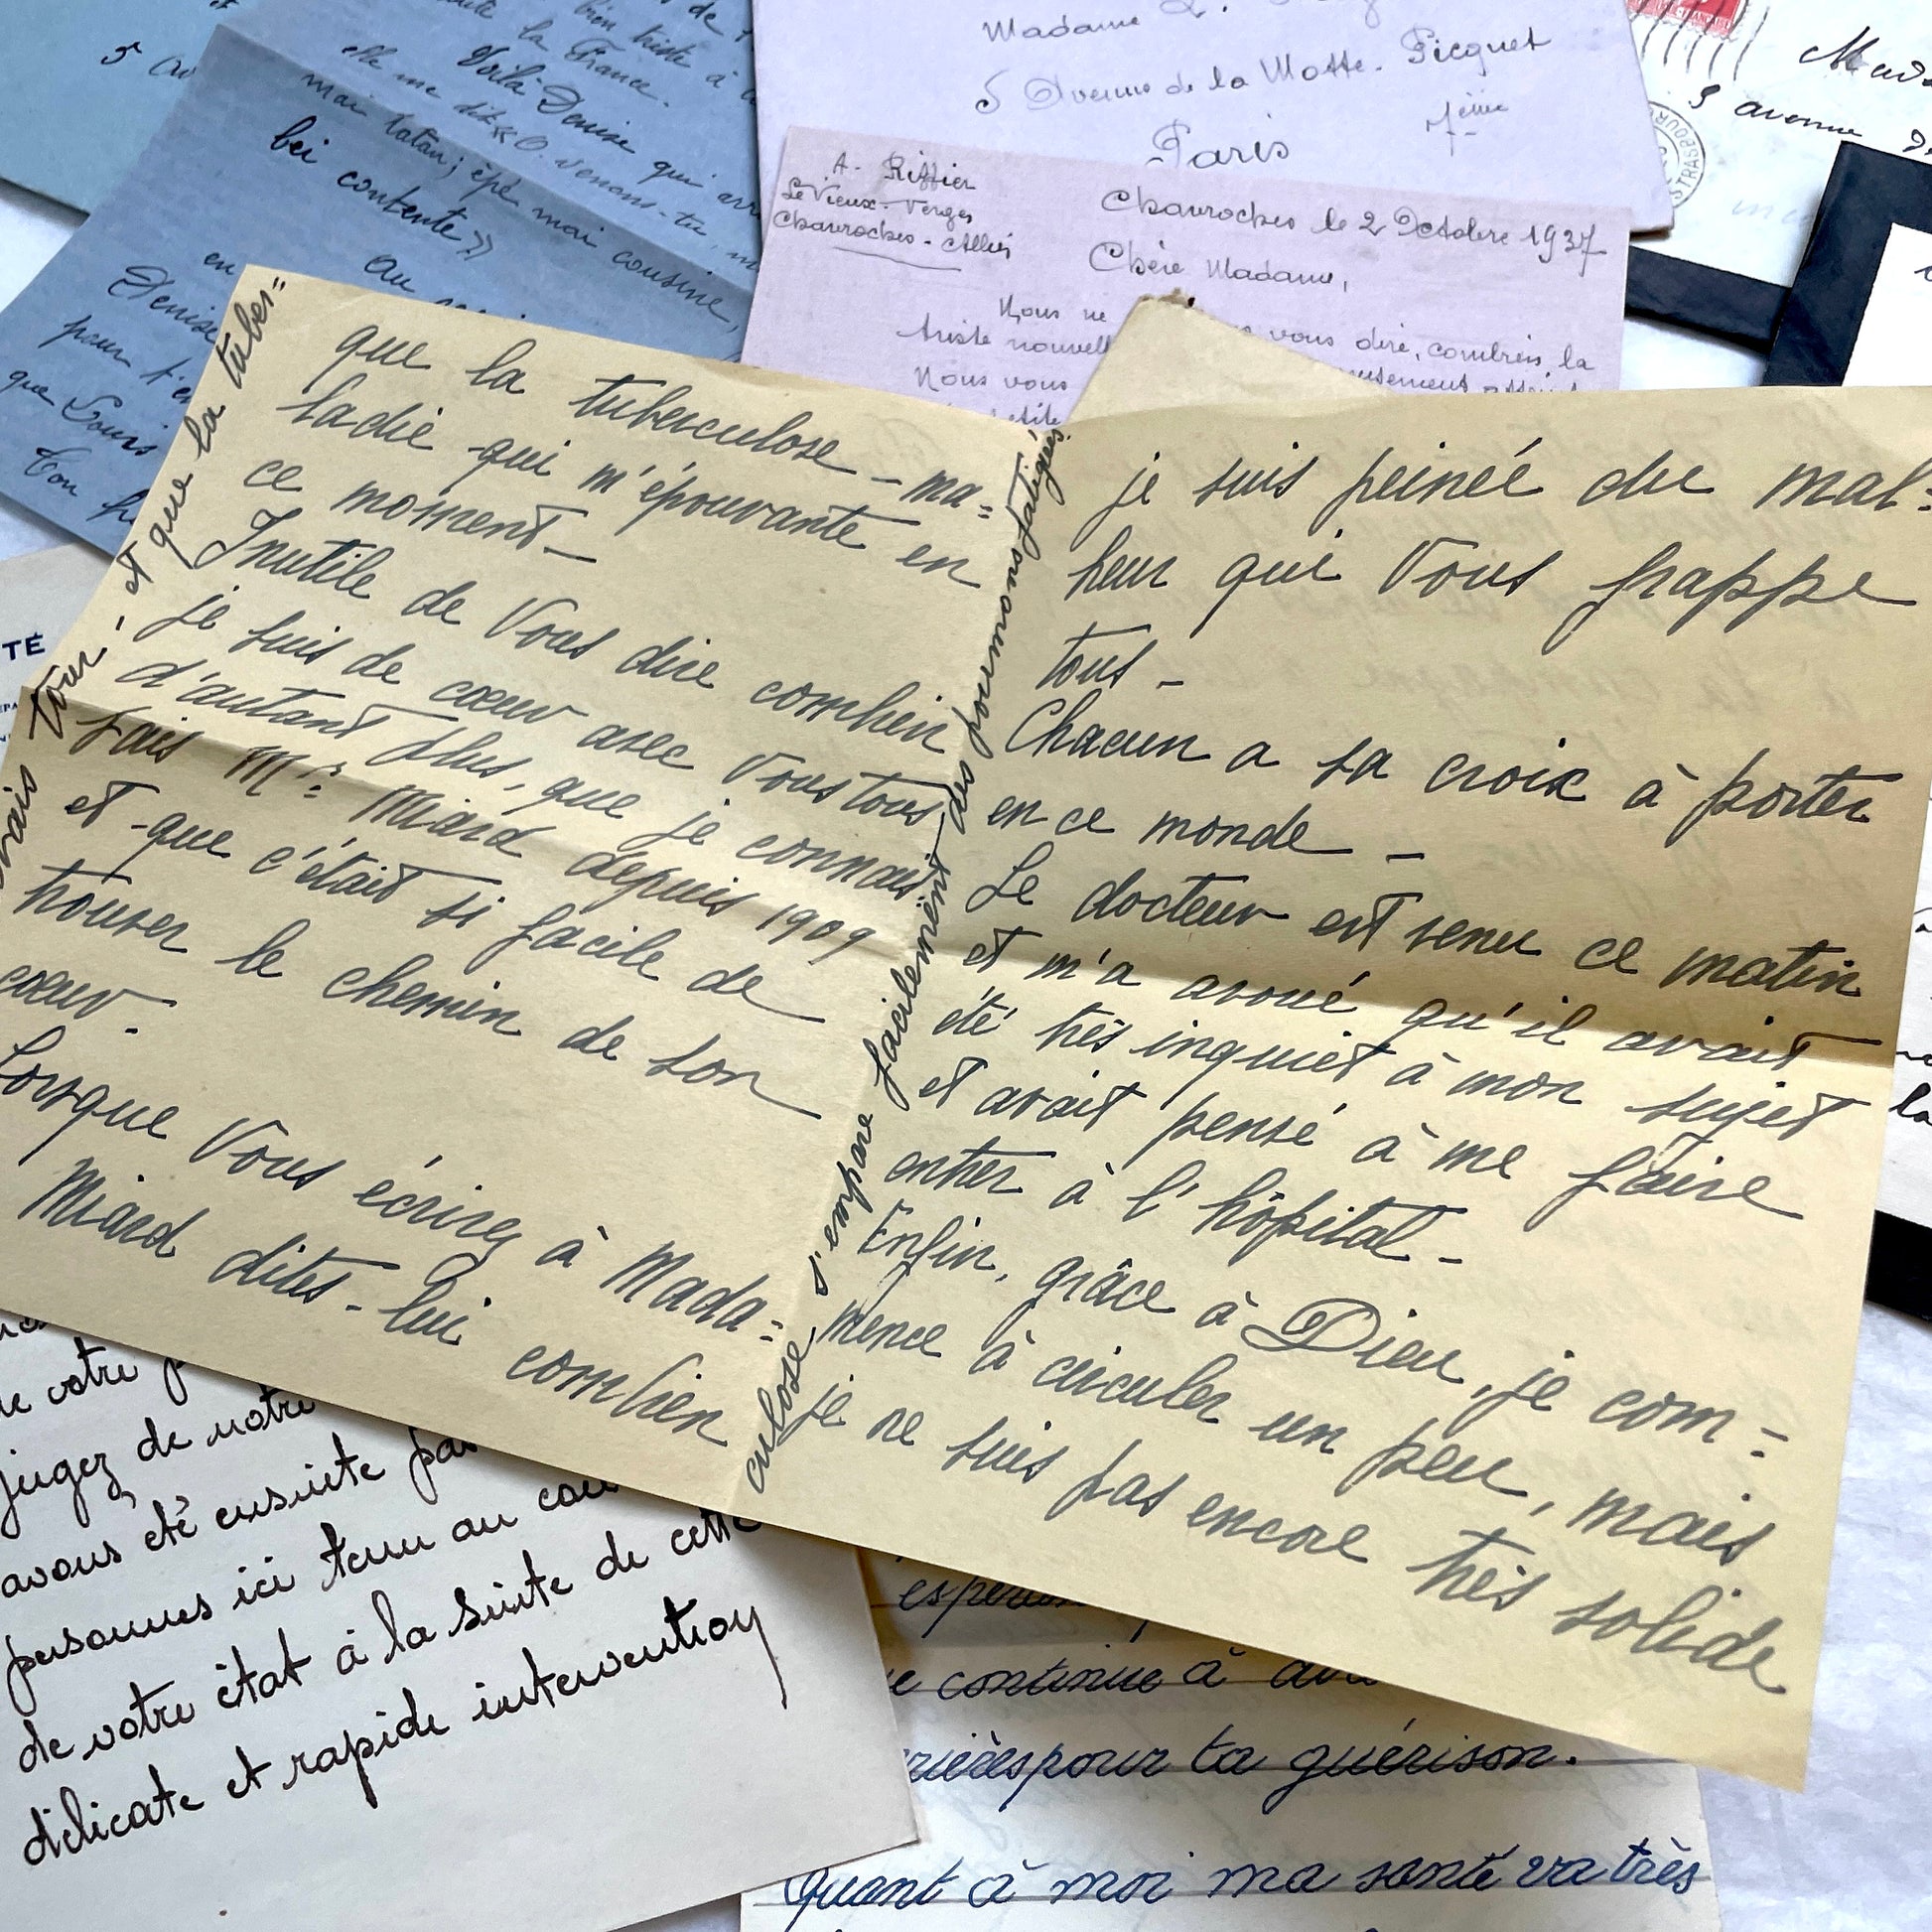 5 Av
bien triste à
la France.
Voilà Denise qui arr
elle me dit « O. venans-tu, m
mai tatan; épé mai cousine,
bei contente »
en
Au
Denise
pour t'en
que Louis
Ton
Madame
5 Avenue de la Motte-Picquet
7ème
Paris
Mad
5 avenue
STRASBOUR
A. Riffier
Le Vieux-Verger
Chavroches-Allier
Chavroches le 2 Octobre 1937
Chère Madame,
Nous ne
vous dire, combien, la
triste nouvell
Nous vous
TÉ
que la tuberculose - ma=
ladie qui m'épouvante en
ce moment -
Inutile de Vous dire combien
je suis de cœur avec Vous tous,
d'autant plus, que je connais=
sais Mr= Miard depuis 1909
et que c'était si facile de
trouver le chemin de son
cœur -
Lorsque Vous écrirez à Mada=
Miard dites-lui combien
tour - et que la tuber=
culose s'empare facilement des poumons fatigués
je suis peinée du mal=
heur qui Vous frappe
tous -
Chacun a sa croix à porter
en ce monde -
Le docteur est venu ce matin
et m'a avoué qu'il avait
été très inquiet à mon sujet
et avait pensé à me faire
entrer à l'hôpital -
Enfin, grâce à Dieu, je com=
mence à circuler un peu, mais
je ne suis pas encore très solide
de votre p
jugez de notre
avons été ensuite par
personnes ici tenu au cou
de votre état à la suite de cette
délicate et rapide intervention
continue à
rières pour ta guérison.
Quant à moi ma santé va très